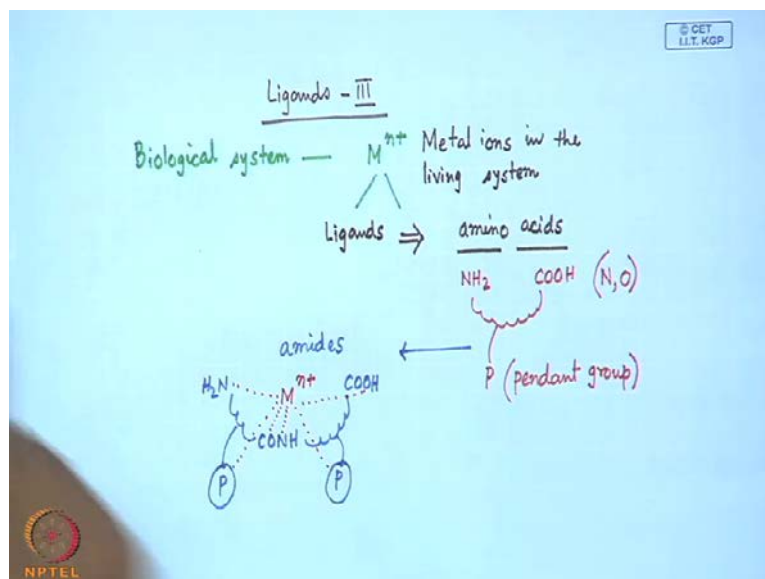 © CET
I.I.T. KGP
Ligands - III
Biological system — Mⁿ⁺ Metal ions in the
living system
Ligands ⇒ amino acids
NH₂ COOH (N,O)
amides ←
P (pendant group)
H₂N Mⁿ⁺ COOH
CONH
P P
NPTEL